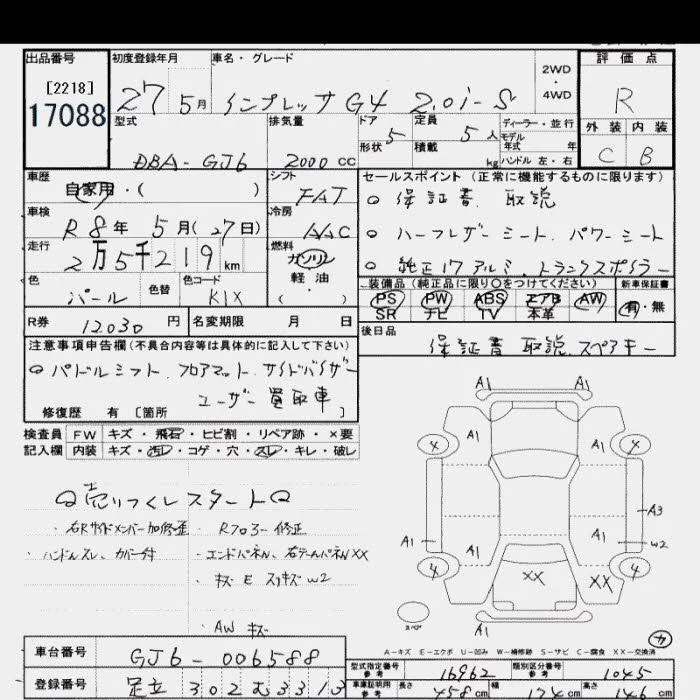 出品番号 初度登録年月 車名・グレード 2WD・4WD 評価点
[2218]
17088
27 5月 インプレッサG4 2.0i-S R
型式 排気量 ドア 形状 5 定員 5人 積載 kg ディーラー・並行 モデル年式 年 ハンドル 左・右 外装 内装
DBA-GJ6 2000cc C B
車歴 自家用・( ) シフト FAT セールスポイント(正常に機能するものに限ります)
保証書 取説
車検 R8年 5月(27日) 冷房 AAC
ハーフレザーシート、パワーシート
走行 2万5千219km 燃料 ガソリン 軽油 ( )
純正17アルミ、トランクスポイラー
色 パール 色替 色コード K1X
装備品(純正品に限り○をつけてください) 新車保証書
PS PW ABS エアB AW 有・無
SR ナビ TV 本革
R券 12030円 名変期限 月 日
後日品 保証書 取説、スペアキー
注意事項申告欄(不具合内容等は具体的に記入して下さい)
パドルシフト、フロアマット、サイドバイザー
ユーザー買取車
修復歴 有 [箇所 ]
検査員 FW キズ・飛石・ヒビ割・リペア跡・×要
記入欄 内装 キズ・汚レ・コゲ・穴・スレ・キレ・破レ
売りつくしスタート
・右Rサイドメンバー加修正 ・Rフロアー修正
・ハンドルスレ、カバー付 ・エンドパネル、右テールパネルXX
・キズ E スリキズ W2
・AW キズ
A1 A1
A1 A1
A3
A1 A1 A1 W2
4 4
XX XX
A1
スペア
A-キズ E-エクボ U-凹み W-補修跡 S-サビ C-腐食 XX-交換済
車台番号 GJ6-006588
登録番号 足立 302
型式指定番号 参考 16962 類別区分番号 参考 1045
車庫証明用 参考 長さ 458cm 幅 174cm 高さ 146cm